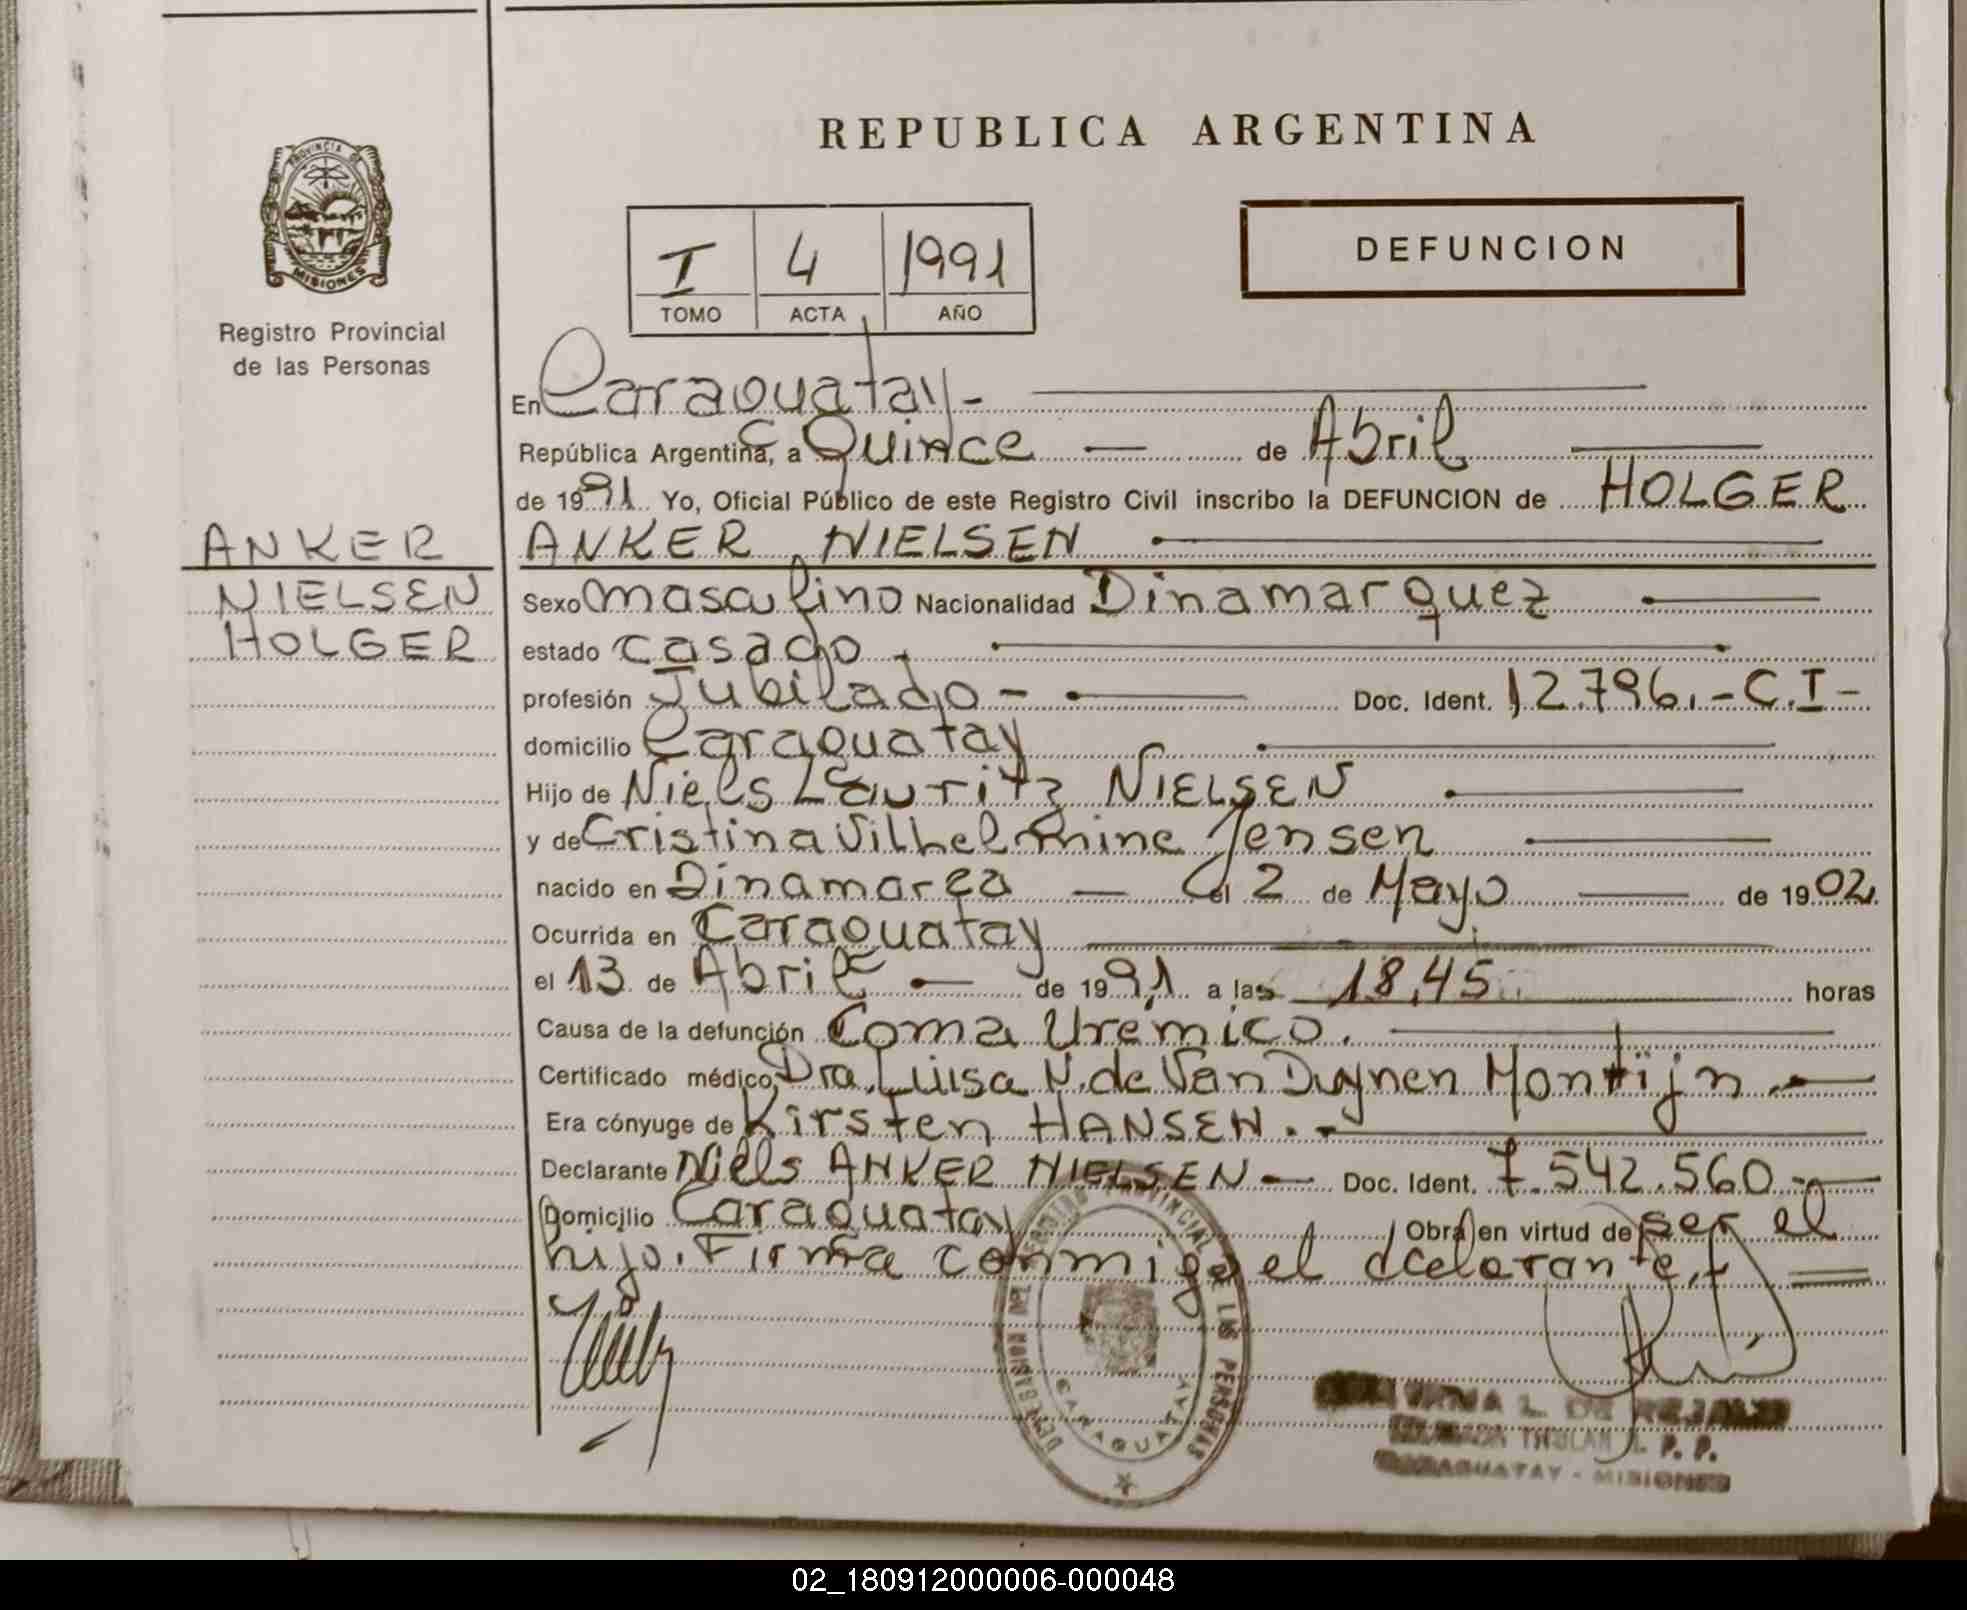 REPUBLICA ARGENTINA
PROVINCIA DE
MISIONES
Registro Provincial
de las Personas
I 4 1991
TOMO ACTA AÑO
DEFUNCION
En Caraguatay-
República Argentina, a Quince — de Abril
de 1991 Yo, Oficial Público de este Registro Civil inscribo la DEFUNCION de HOLGER
ANKER NIELSEN
ANKER
NIELSEN
HOLGER
Sexo masculino Nacionalidad Dinamarquez
estado casado.
profesión Jubilado - Doc. Ident. 12.796.-C.I-
domicilio Caraguatay
Hijo de Niels Lauritz NIELSEN
y de Cristina Vilhelmine Jensen
nacido en Dinamarca — el 2 de Mayo — de 1902.
Ocurrida en Caraguatay
el 13 de Abril — de 1991 a las 18,45 horas
Causa de la defunción Coma Uremico.
Certificado médico Dra. Luisa N. de Van Duynen Montijn.-
Era cónyuge de Kirsten HANSEN.-
Declarante Niels ANKER NIELSEN — Doc. Ident. 7.542.560.-
Domicilio Caraguatay Obra en virtud de ser el
hijo. Firma conmigo el declarante.
REGISTRO PROVINCIAL DE LAS PERSONAS
CARAGUATAY
L. DE REJALA
TITULAR R. P. P.
CARAGUATAY - MISIONES
02_180912000006-000048